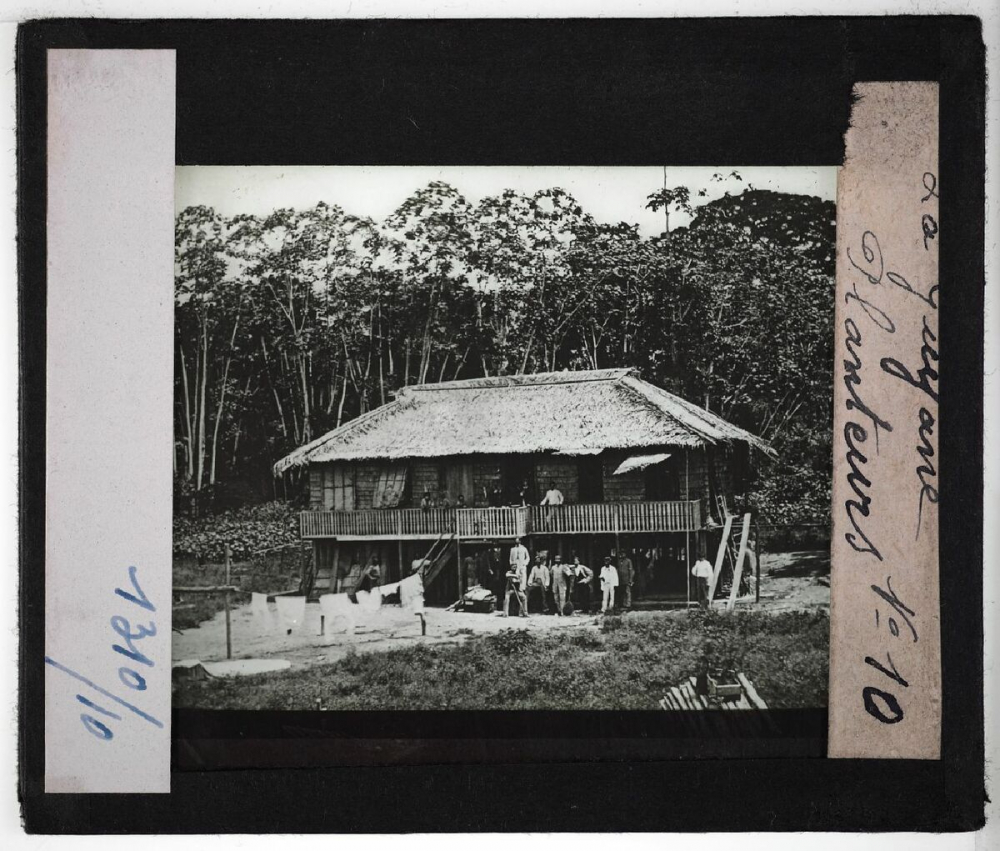 1310/10
La Guyane
Planteurs No 10